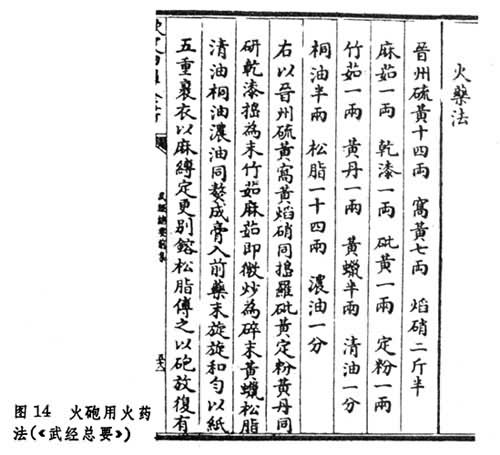 火藥法
晉州硫黃十四兩 窩黃七兩 焰硝二斤半
麻茹一兩 乾漆一兩 砒黃一兩 定粉一兩
竹茹一兩 黃丹一兩 黃蠟半兩 清油一分
桐油半兩 松脂一十四兩 濃油一分
右以晉州硫黃窩黃焰硝同搗羅砒黃定粉黃丹同
研乾漆搗為末竹茹麻茹即微炒為碎末黃蠟松脂
清油桐油濃油同熬成膏入前藥末旋旋和勻以紙
五重裹衣以麻縛定更別鎔松脂傅之以砲放復有
图14 火砲用火药
法(《武经总要》)